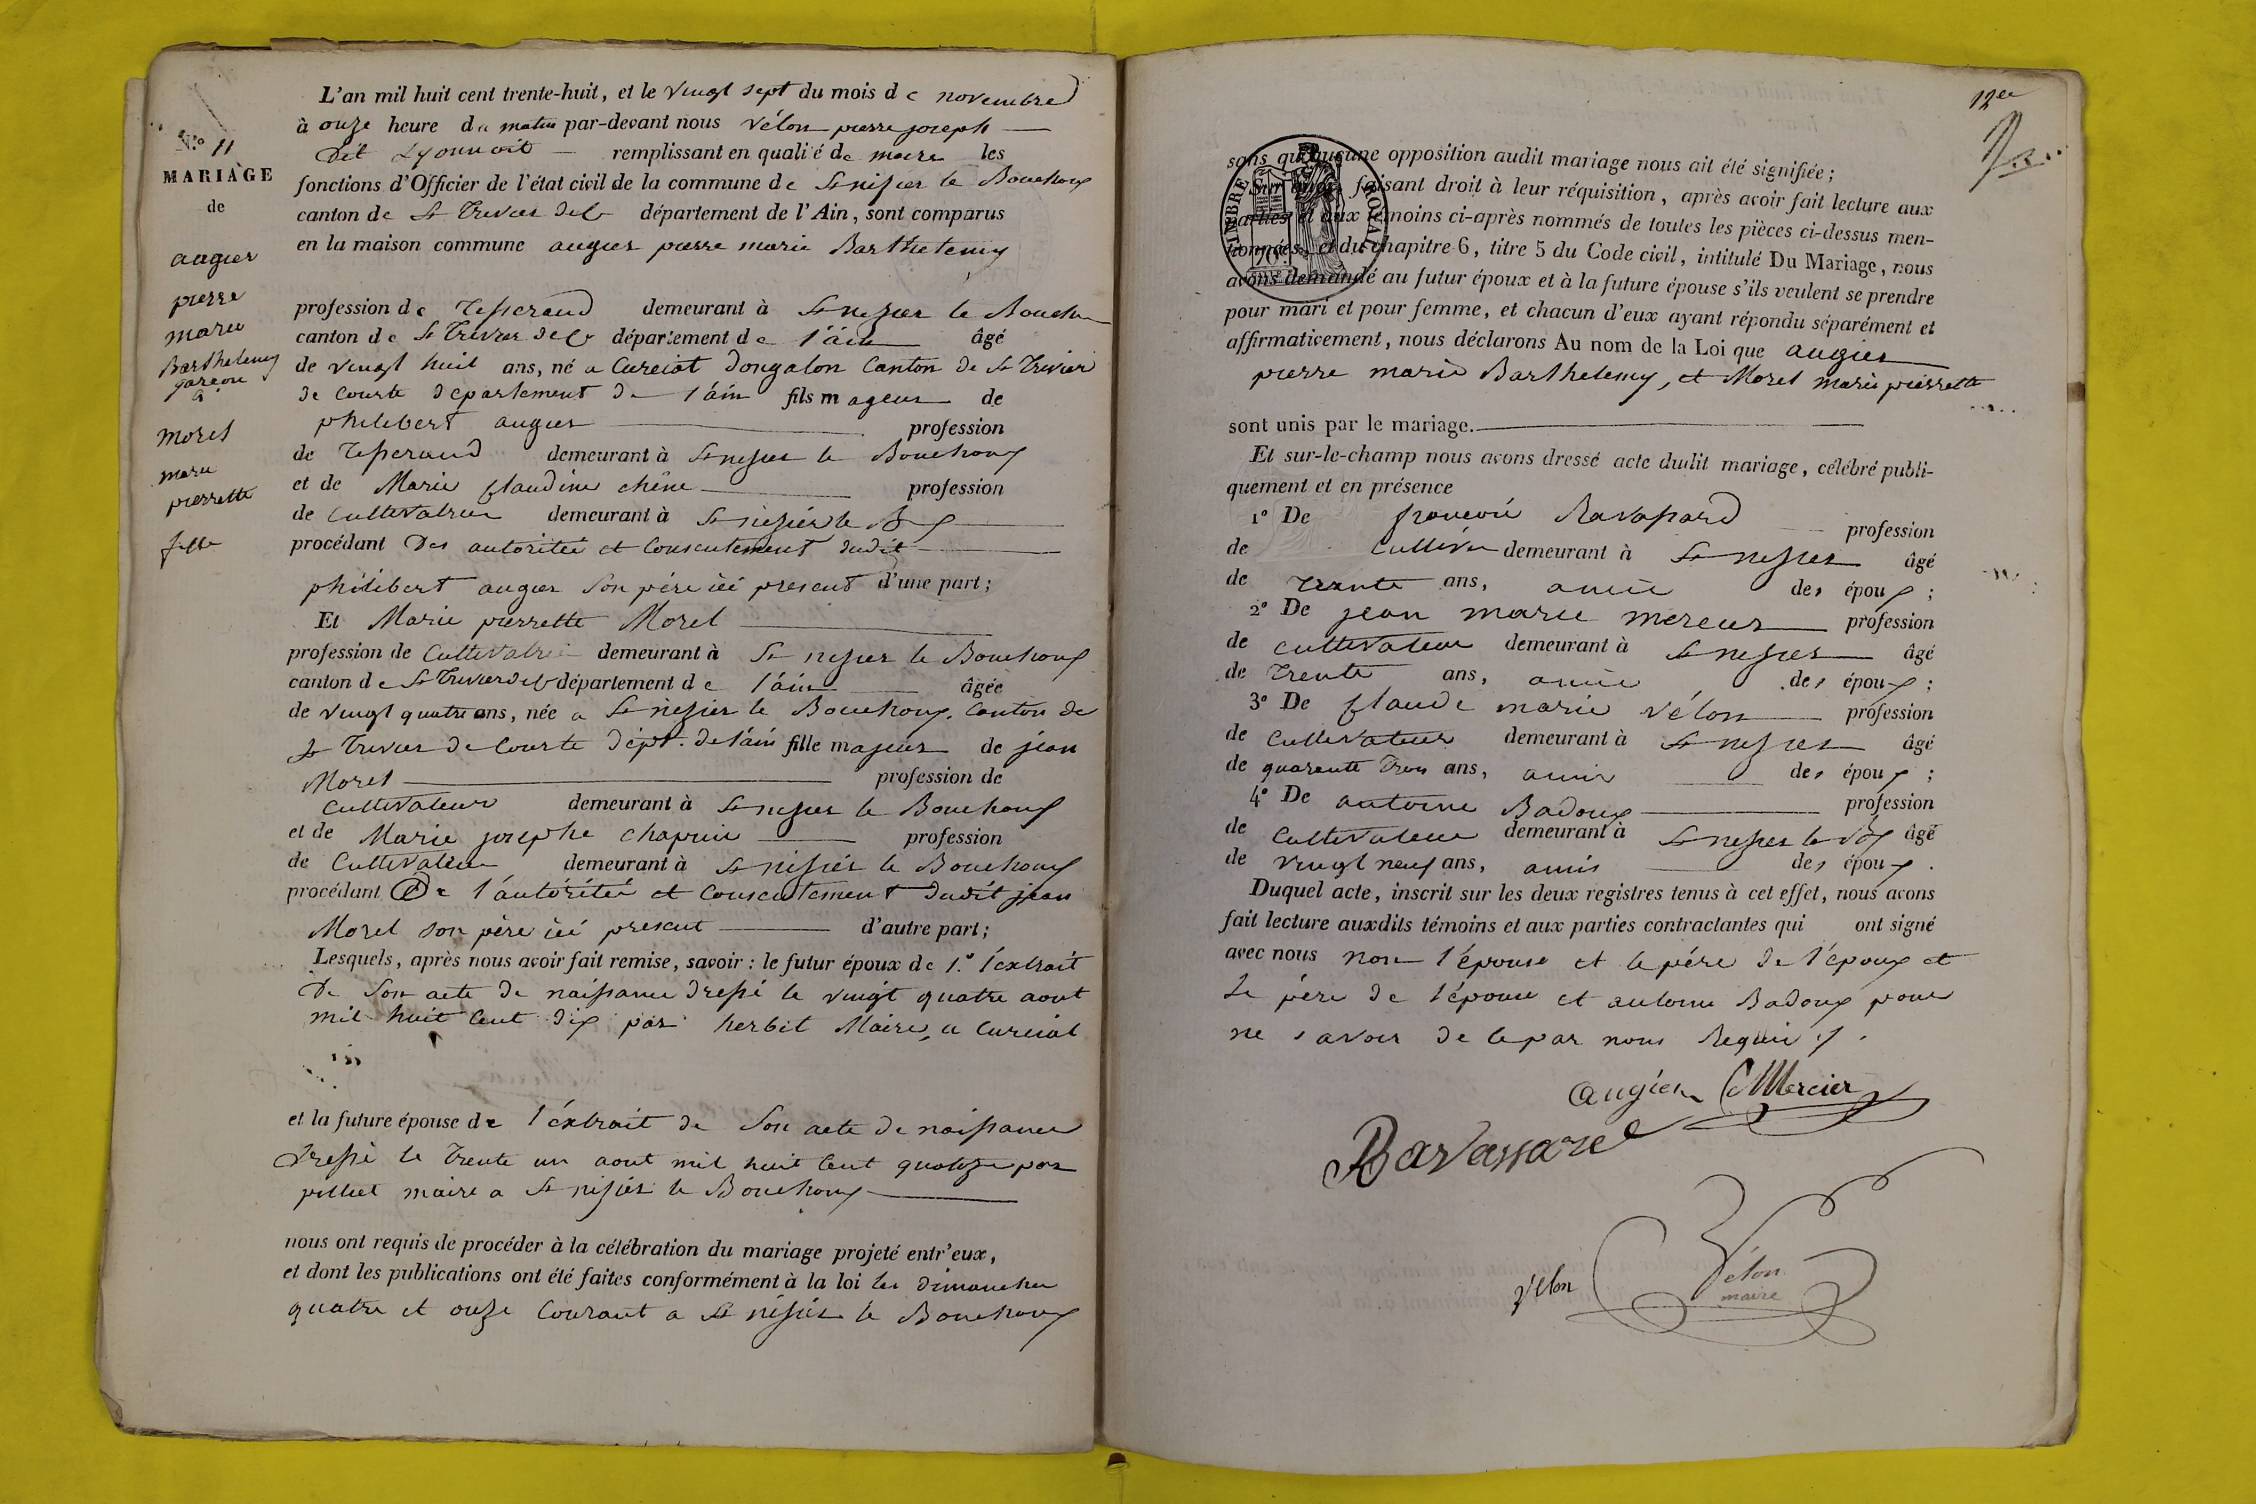 N.° 11
MARIAGE
de
augier
pierre
marie
Barthelemy
garcon
a
morel
marie
pierrette
fille
L'an mil huit cent trente-huit, et le vingt sept du mois de novembre
à onze heure du matin par-devant nous vélon pierre joseph
dit Lyonnoit remplissant en qualité de maire les
fonctions d'Officier de l'état civil de la commune de St nisier le Bouchoux
canton de St Trivier de C. département de l'Ain, sont comparus
en la maison commune augier pierre marie Barthelemy
profession de Tisserand demeurant à St nisier le Bouchoux
canton de St Trivier de C. département de l'áin âgé
de vingt huit ans, né a Curciat dongalon Canton de St Trivier
de Courte departement de l'áin fils mageur de
philibert augier profession
de Tisserand demeurant à St nisier le Bouchoux
et de Marie Claudine chêne profession
de Cultivatrice demeurant à St nisier le Bx
procédant des autoritéé et Consentement dudit
philibert augier son père ici present d'une part;
Et Marie pierrette Morel
profession de Cultivatrice demeurant à St nisier le Bouchoux
canton de St Trivier de C. département de l'áin âgée
de vingt quatre ans, née a St nisier le Bouchoux, Canton de
St Trivier de Courte dépt. de l'áin fille majeur de jean
Morel profession de
Cultivateur demeurant à St nisier le Bouchoux
et de Marie josephe chapuis profession
de Cultivatrice demeurant à St nisier le Bouchoux
procédant de l'autoritéé et Consentement dudit jean
Morel son père ici present d'autre part;
Lesquels, après nous avoir fait remise, savoir: le futur époux de 1.° l'extrait
de son acte de naissance dressé le vingt quatre aout
mil huit Cent dix par herbet Maire, a Curciat
et la future épouse de l'éxtrait de son acte de naissance
dressé le Trente un aout mil huit Cent quatorze par
pilliet maire a St nisier le Bouchoux
nous ont requis de procéder à la célébration du mariage projeté entr'eux,
et dont les publications ont été faites conformément à la loi les dimanches
quatre et onze Courant a St nisier le Bouchoux
12ee
TIMBRE ROYAL
sans qu'aucune opposition audit mariage nous ait été signifiée;
Sur quoi, faisant droit à leur réquisition, après avoir fait lecture aux
parties et aux témoins ci-après nommés de toutes les pièces ci-dessus men-
tionnées, et du chapitre 6, titre 5 du Code civil, intitulé Du Mariage, nous
avons demandé au futur époux et à la future épouse s'ils veulent se prendre
pour mari et pour femme, et chacun d'eux ayant répondu séparément et
affirmativement, nous déclarons Au nom de la Loi que augier
pierre marie Barthelemy, et Morel marie pierrette
sont unis par le mariage.
Et sur-le-champ nous avons dressé acte dudit mariage, célébré publi-
quement et en présence
1° De francois Ravassard profession
de Cultiv. demeurant à St nisier âgé
de trente ans, amis des époux;
2° De jean marie mercier profession
de cultivateur demeurant à St nisier âgé
de Trente ans, amis des époux;
3° De Claude marie vélon profession
de cultivateur demeurant à St nisier âgé
de quarante Trois ans, amis des époux;
4° De antoine Badoux profession
de Cultivateur demeurant à St nisier le Bx âgé
de vingt neuf ans, amis des époux.
Duquel acte, inscrit sur les deux registres tenus à cet effet, nous avons
fait lecture auxdits témoins et aux parties contractantes qui ont signé
avec nous non l'épouse et le père de l'époux et
le père de l'épouse et antoine Badoux pour
ne savoir de ce par nous Requis.
augier CMMercier
Ravassard
vélon
Vélon
maire